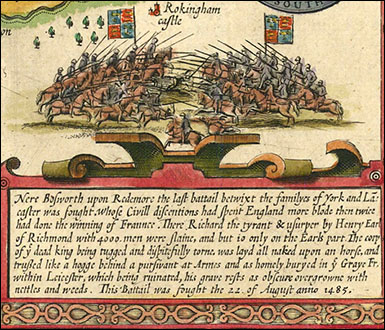 SOUTH
Rokingham
castle
on
Nere Bosworth upon Redemore the last battail betwixt the familyes of York and Lā
caster was fought, Whose Civill discentions had spent England more blode then twice
had done the winning of France. There Richard the tyrant & usurper by Henry Earl
of Richmond with 4000. men were slaine, and but 10 only on the Earls part The corp
of yͤ dead king being tugged and dispitfully torne, was layd all naked upon an horse, and
trussed like a hogge behind a pursivant at Armes and as homely buryed in yͤ Gray Fr.
within Leicester, which being ruinated, his grave rests as obscure overgrowne with
nettles and weeds. This Battail was fought the 22. of August anno 1485.